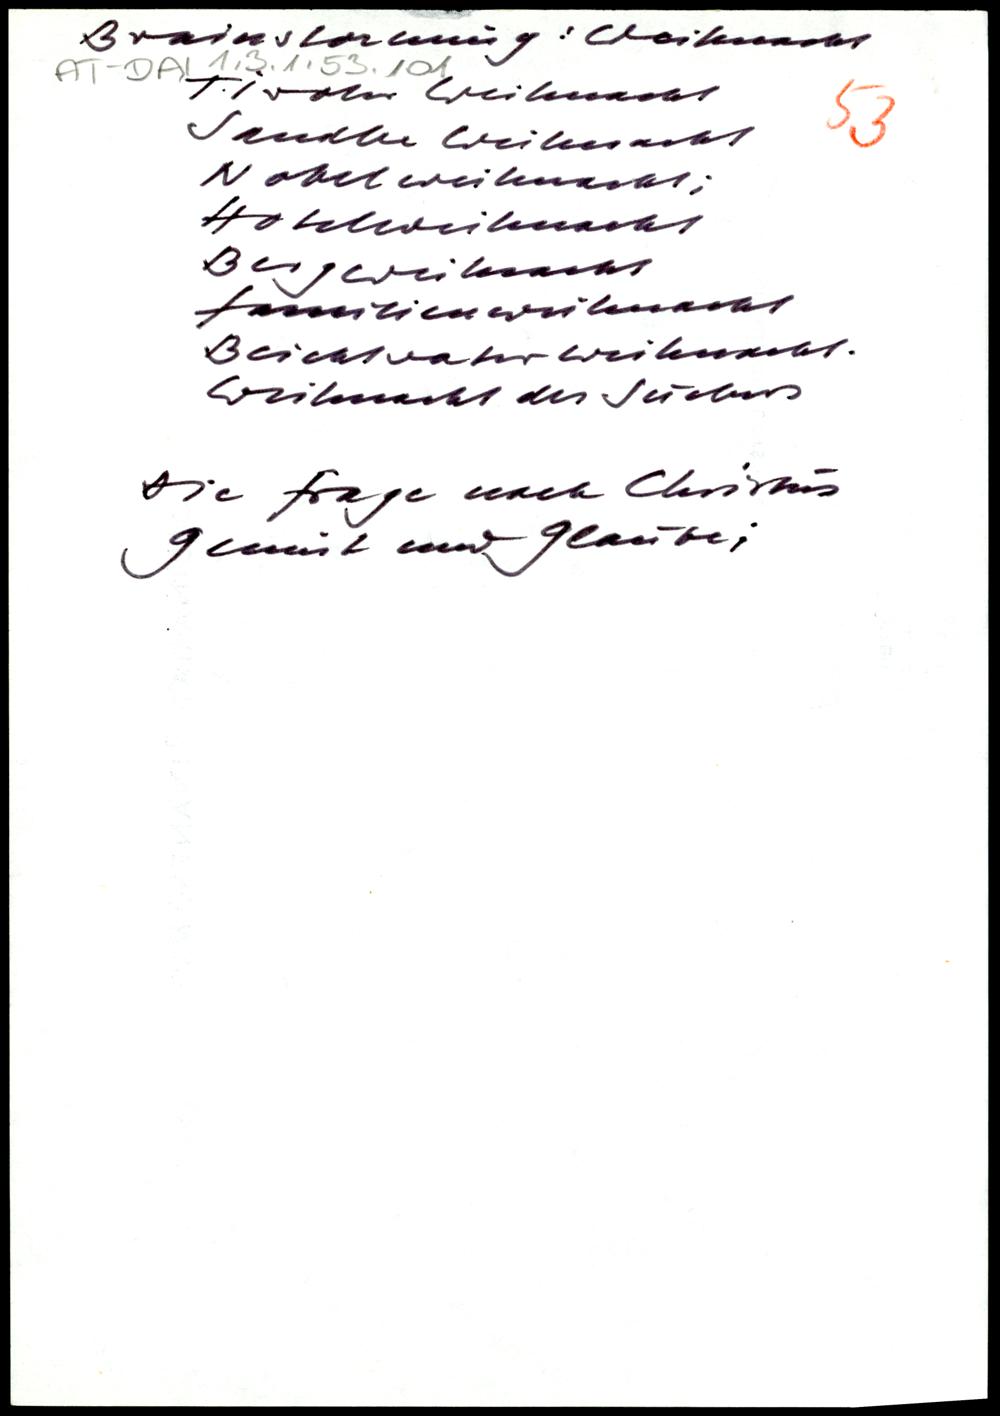 Brainstorming: Weihnacht
AT-DAI 1.3.1.53.101
Tiroler Weihnacht
53
Weihnacht
Nobelweihnacht;
Hotelweihnacht
Bergweihnacht
Familienweihnacht
Beichtvaterweihnacht.
Weihnacht des Suchers
Die Frage nach Christus
Gemüt und Glaube;